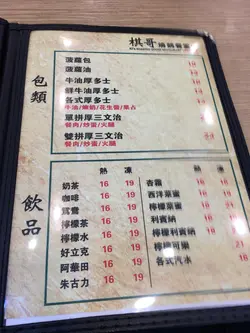 棋哥燒鵝餐室
包類
菠蘿包
菠蘿油
牛油厚多士
鮮牛油厚多士
各式厚多士
(牛油/煉奶/花生醬/果占
單拼厚三文治
餐肉/炒蛋/火腿
雙拼厚三文治
餐肉/炒蛋/火腿
飲品
熱 凍
奶茶 16 19
咖啡 16 19
鴛鴦 16 19
檸檬茶 16 19
檸檬水 16 19
好立克 16 19
阿華田 16 19
朱古力 16 19
熱 凍
杏霜 16 19
西洋菜蜜
檸檬菜蜜
利賓納
檸檬利賓納
檸檬可樂
各式汽水 16